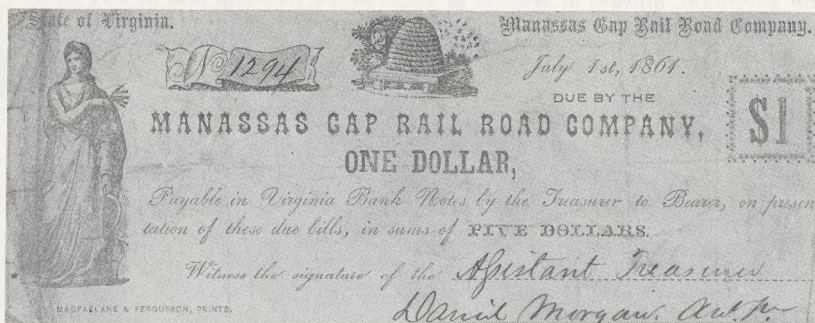 State of Virginia.
Manassas Gap Rail Road Company.
No 1294
July 1st, 1861.
DUE BY THE
MANASSAS GAP RAIL ROAD COMPANY,
$1
ONE DOLLAR,
Payable in Virginia Bank Notes by the Treasurer to Bearer, on presen-
tation of these due bills, in sums of FIVE DOLLARS.
Witness the signature of the Assistant Treasurer
MACFARLANE & FERGUSSON, PRINTS.
Daniel Morgan,